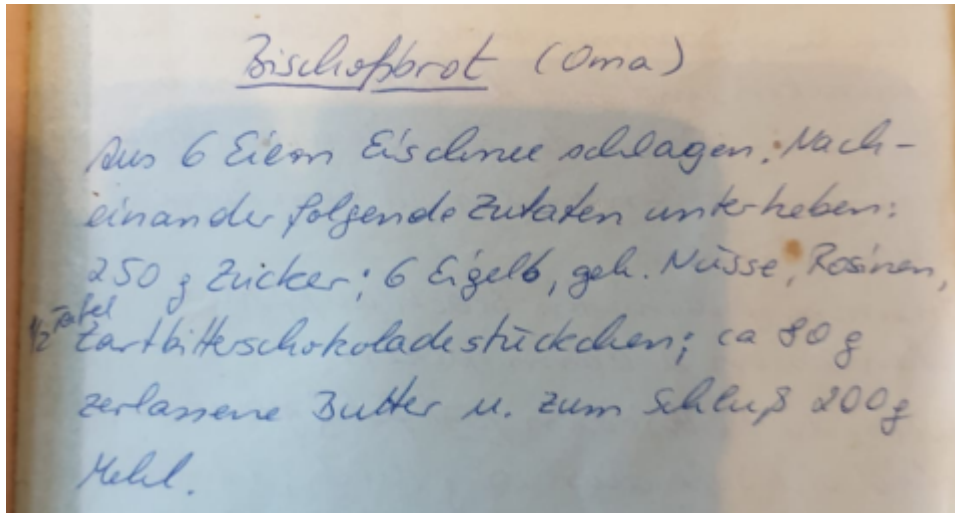 Bischofsbrot (Oma)
Aus 6 Eiern Eischnee schlagen. Nach-
einander folgende Zutaten unterheben:
250 g Zucker; 6 Eigelb, geh. Nüsse, Rosinen,
1/2 Tafel
Zartbitterschokoladestückchen; ca 80 g
zerlassene Butter u. zum Schluß 200g
Mehl.